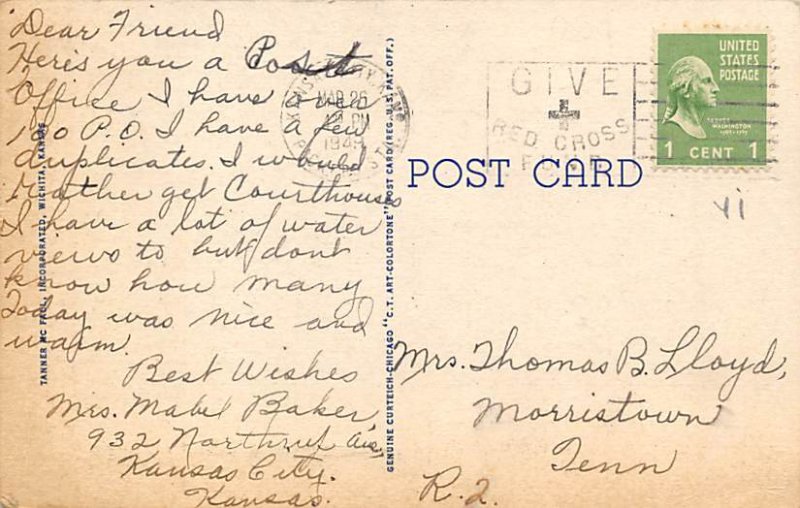 Dear Friend
Here's you a Post
Office I have a
100 P.O. I have a few
duplicates. I would
rather get Courthouses
I have a lot of water
views to but dont
know how many
Today was nice and
warm.
Best Wishes
Mrs. Mabel Baker
932 Ave,
Kansas City.
Kansas.
TANNER MC FAUL, INCORPORATED, WICHITA, KANSAS
GENUINE CURTEICH-CHICAGO "C.T. ART-COLORTONE" POST CARD (REG. U.S. PAT. OFF.)
MAR 26
PM
GIVE
RED CROSS
FUND
UNITED
STATES
POSTAGE
WASHINGTON
1 CENT 1
POST CARD
41
Mrs. Thomas B. Lloyd,
Morristown
Tenn
R.2.